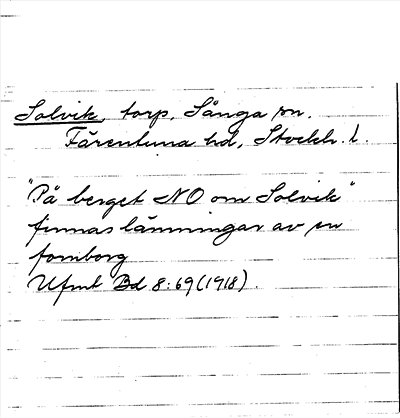 Solvik, torp, Sånga sn.
Färentuna hd, Stockh. l.
"På berget NO om Solvik"
finnas lämningar av en
fornborg
Ufmt Bd 8:69 (1918).